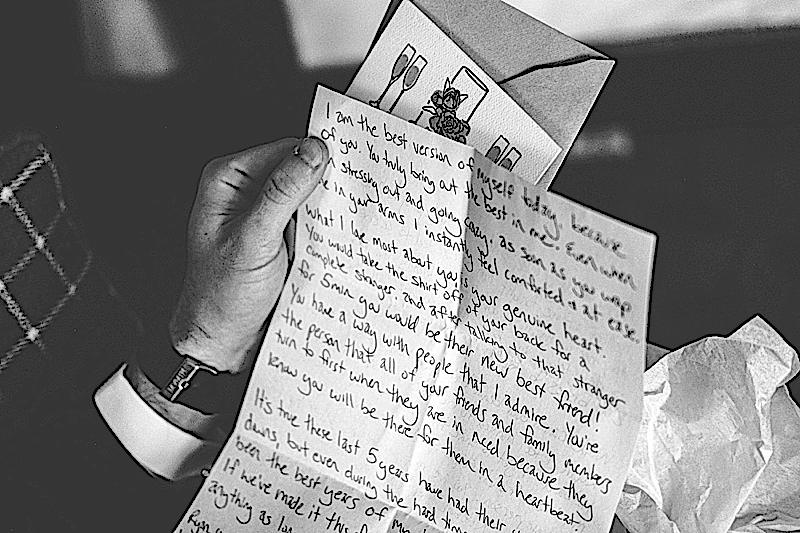 I am the best version of myself today, because
of you. You truly bring out the best in me. Even when
stressing out and going crazy, as soon as you wrap
me in your arms I instantly feel comforted & at ease.
What I love most about you is your genuine heart.
You would take the shirt off of your back for a
complete stranger and after talking to that stranger
for 5min you would be their new best friend!
You have a way with people that I admire. You're
the person that all of your friends and family members
turn to first when they are in need because they
know you will be there for them in a heartbeat.
It's true these last 5 years have had their
downs, but even during the hard times
been the best years of my
If we've made it this
anything as
Ryan